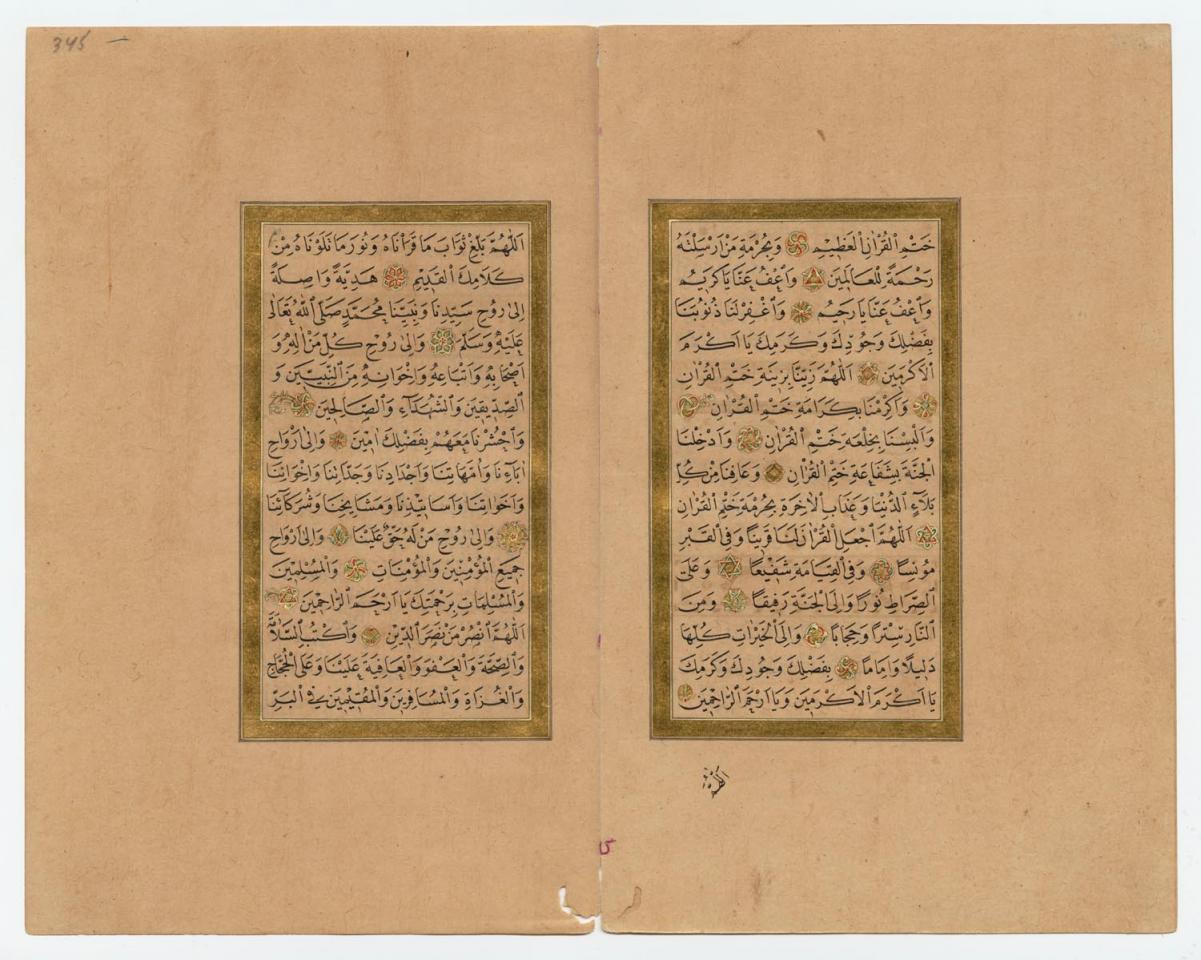 خَتْمِ الْقُرْاٰنِ الْعَظِيمِ وَبِحُرْمَةِ مَنْ اَرْسَلْتَهُ
رَحْمَةً لِلْعَالَمِينَ وَاعْفُ عَنَّا يَا كَرِيمُ
وَاعْفُ عَنَّا يَا رَحِيمُ وَاغْفِرْ لَنَا ذُنُوبَنَا
بِفَضْلِكَ وَجُودِكَ وَكَرَمِكَ يَا اَكْرَمَ
الْاَكْرَمِينَ اَللّٰهُمَّ زَيِّنَّا بِزِينَةِ خَتْمِ الْقُرْاٰنِ
وَاَكْرِمْنَا بِكَرَامَةِ خَتْمِ الْقُرْاٰنِ
وَاَلْبِسْنَا بِخِلْعَةِ خَتْمِ الْقُرْاٰنِ وَاَدْخِلْنَا
الْجَنَّةَ بِشَفَاعَةِ خَتْمِ الْقُرْاٰنِ وَعَافِنَا مِنْ كُلِّ
بَلَاءِ الدُّنْيَا وَعَذَابِ الْاٰخِرَةِ بِحُرْمَةِ خَتْمِ الْقُرْاٰنِ
اَللّٰهُمَّ اجْعَلِ الْقُرْاٰنَ لَنَا قَرِينًا وَفِي الْقَبْرِ
مُونِسًا وَفِي الْقِيَامَةِ شَفِيعًا وَعَلَى
الصِّرَاطِ نُورًا وَاِلَى الْجَنَّةِ رَفِيقًا وَمِنَ
النَّارِ سِتْرًا وَحِجَابًا وَاِلَى الْخَيْرَاتِ كُلِّهَا
دَلِيلًا وَاِمَامًا بِفَضْلِكَ وَجُودِكَ وَكَرَمِكَ
يَا اَكْرَمَ الْاَكْرَمِينَ وَيَا اَرْحَمَ الرَّاحِمِينَ
اَللّٰهُمَّ
345
اَللّٰهُمَّ بَلِّغْ ثَوَابَ مَا قَرَأْنَاهُ وَنُورَ مَا تَلَوْنَاهُ مِنْ
كَلَامِكَ الْقَدِيمِ هَدِيَّةً وَاصِلَةً
اِلٰى رُوحِ سَيِّدِنَا وَنَبِيِّنَا مُحَمَّدٍ صَلَّى اللّٰهُ تَعَالٰى
عَلَيْهِ وَسَلَّمَ وَاِلٰى رُوحِ كُلٍّ مِنْ اٰلِهِ وَ
اَصْحَابِهِ وَاَتْبَاعِهِ وَاِخْوَانِهِ مِنَ النَّبِيِّينَ وَ
الصِّدِّيقِينَ وَالشُّهَدَاءِ وَالصَّالِحِينَ
وَاحْشُرْنَا مَعَهُمْ بِفَضْلِكَ اٰمِينَ وَاِلٰى اَرْوَاحِ
اٰبَاءِنَا وَاُمَّهَاتِنَا وَاَجْدَادِنَا وَجَدَّاتِنَا وَاِخْوَانِنَا
وَاَخَوَاتِنَا وَاَسَاتِيذِنَا وَمَشَايِخِنَا وَشُرَكَائِنَا
وَاِلٰى رُوحِ مَنْ لَهُ حَقٌّ عَلَيْنَا وَاِلٰى اَرْوَاحِ
جَمِيعِ الْمُؤْمِنِينَ وَالْمُؤْمِنَاتِ وَالْمُسْلِمِينَ
وَالْمُسْلِمَاتِ بِرَحْمَتِكَ يَا اَرْحَمَ الرَّاحِمِينَ
اَللّٰهُمَّ انْصُرْ مَنْ نَصَرَ الدِّينَ وَاكْتُبِ السَّلَامَةَ
وَالصِّحَّةَ وَالْعَفْوَ وَالْعَافِيَةَ عَلَيْنَا وَعَلَى الْحُجَّاجِ
وَالْغُزَاةِ وَالْمُسَافِرِينَ وَالْمُقِيمِينَ فِي الْبَرِّ